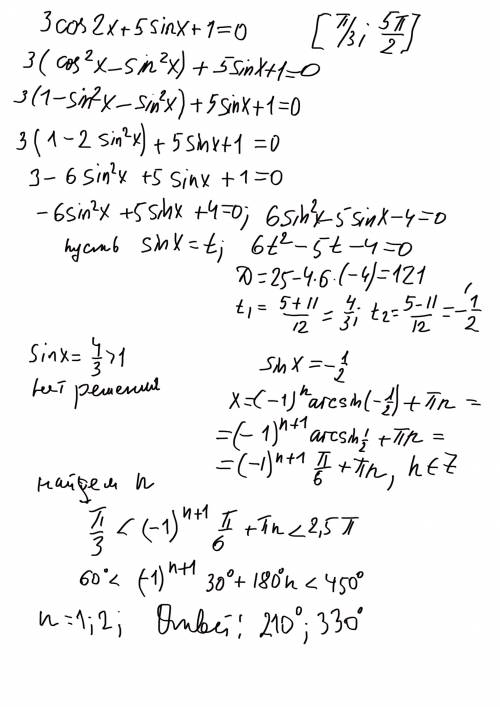 3cos2x+5sinx+1=0 [π/3; 5π/2]
3(cos²x-sin²x)+5sinx+1=0
3(1-sin²x-sin²x)+5sinx+1=0
3(1-2sin²x)+5sinx+1=0
3-6sin²x+5sinx+1=0
-6sin²x+5sinx+4=0; 6sin²x-5sinx-4=0
пусть sinx=t; 6t²-5t-4=0
D=25-4·6·(-4)=121
t₁=(5+11)/12=4/3; t₂=(5-11)/12=-1/2
sinx=4/3>1 sinx=-1/2
нет решения x=(-1)ⁿarcsin(-1/2)+πn=
=(-1)ⁿ⁺¹arcsin1/2+πn=
=(-1)ⁿ⁺¹ π/6+πn, n∈Z
найдем n
π/3<(-1)ⁿ⁺¹ π/6+πn<2,5π
60°<(-1)ⁿ⁺¹ 30°+180°n<450°
n=1; 2; Ответ: 210°; 330°